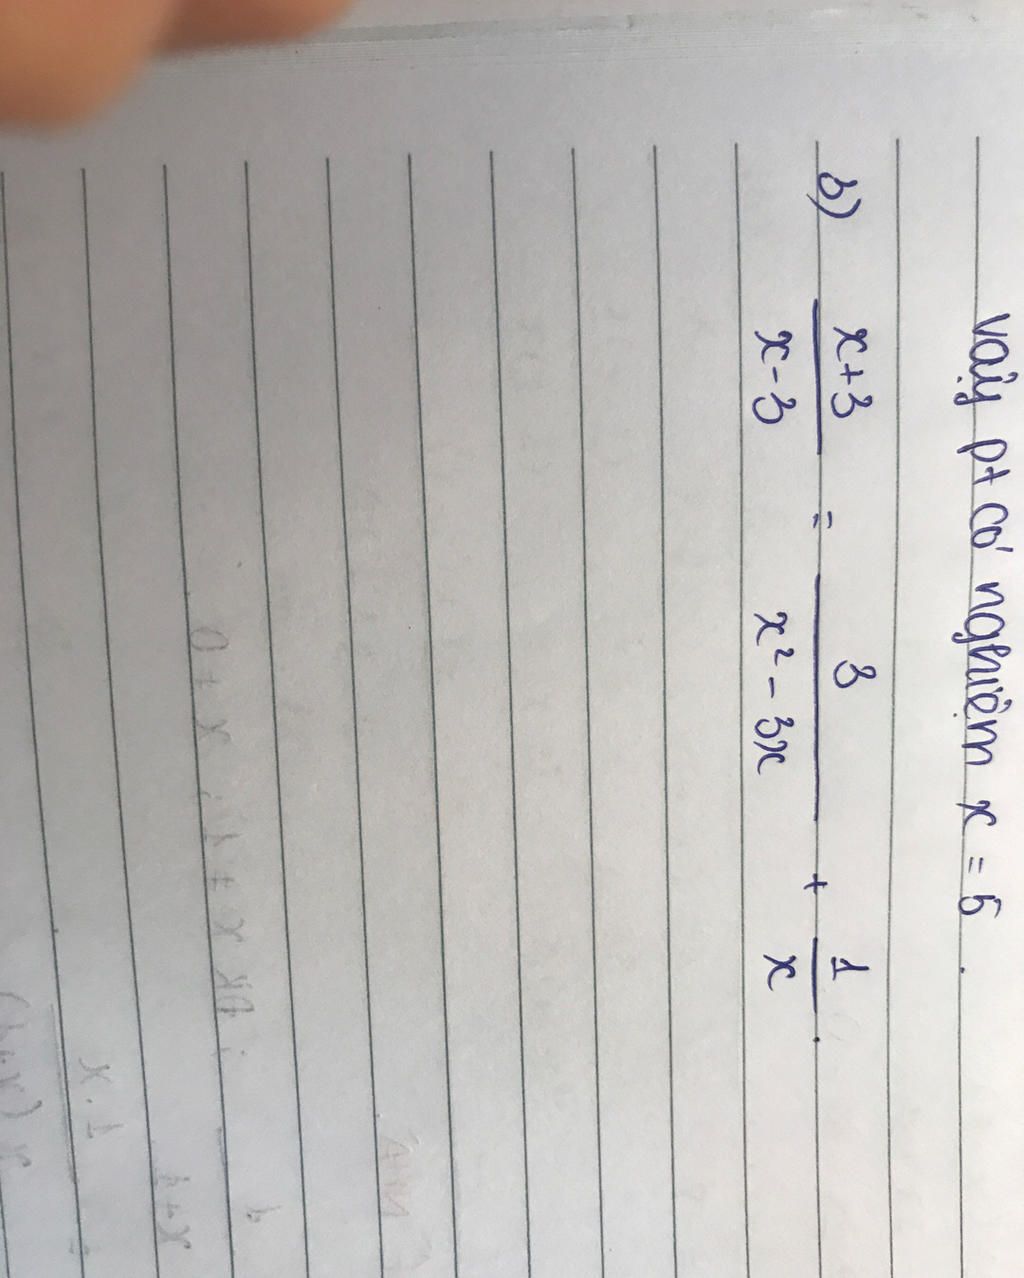 Vậy pt có nghiệm x = 5.
b) x+3 / x-3 = 3 / x² - 3x + 1 / x .